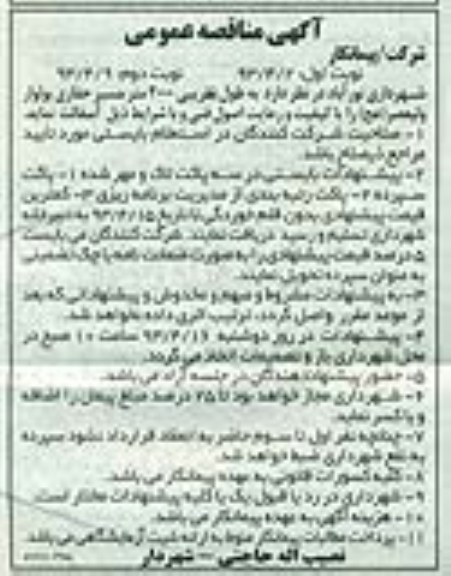 آگهی مناقصه عمومی
شرکت/پیمانکار
نوبت اول: ۹۳/۴/۲ نوبت دوم: ۹۳/۴/۹
شهرداری نورآباد در نظر دارد به طول تقریبی ۴۰۰ متر مسیر حفاری بولوار
ولیعصر (عج) را با کیفیت و رعایت اصول فنی و با شرایط ذیل آسفالت نماید.
۱- صلاحیت شرکت کنندگان در استعلام بایستی مورد تایید
مراجع ذیصلاح باشد.
۲- پیشنهادات بایستی در سه پاکت لاک و مهر شده ۱- پاکت
سپرده ۲- پاکت رتبه بندی از مدیریت برنامه ریزی ۳- کمترین
قیمت پیشنهادی بدون قلم خوردگی تا تاریخ ۹۳/۴/۱۵ به دبیرخانه
شهرداری تسلیم و رسید دریافت نمایند. شرکت کنندگان می بایست
۵ درصد قیمت پیشنهادی را به صورت ضمانت نامه یا چک تضمینی
به عنوان سپرده تحویل نمایند.
۳- به پیشنهادات مشروط و مبهم و مخدوش و پیشنهاداتی که بعد
از موعد مقرر واصل گردد، ترتیب اثری داده نخواهد شد.
۴- پیشنهادات در روز دوشنبه ۹۳/۴/۱۶ ساعت ۱۰ صبح در
محل شهرداری باز و تصمیمات اتخاذ می گردد.
۵- حضور پیشنهاددهندگان در جلسه آزاد می باشد.
۶- شهرداری مجاز خواهد بود تا ۲۵ درصد مبلغ پیمان را اضافه
و یا کسر نماید.
۷- چنانچه نفر اول تا سوم حاضر به انعقاد قرارداد نشود سپرده
به نفع شهرداری ضبط خواهد شد.
۸- کلیه کسورات قانونی به عهده پیمانکار می باشد.
۹- شهرداری در رد یا قبول یک یا کلیه پیشنهادات مختار است.
۱۰- هزینه آگهی به عهده پیمانکار می باشد.
۱۱- پرداخت مطالبات پیمانکار منوط به ارائه شیت آزمایشگاهی می باشد.
نصیب اله حاجتی - شهردار